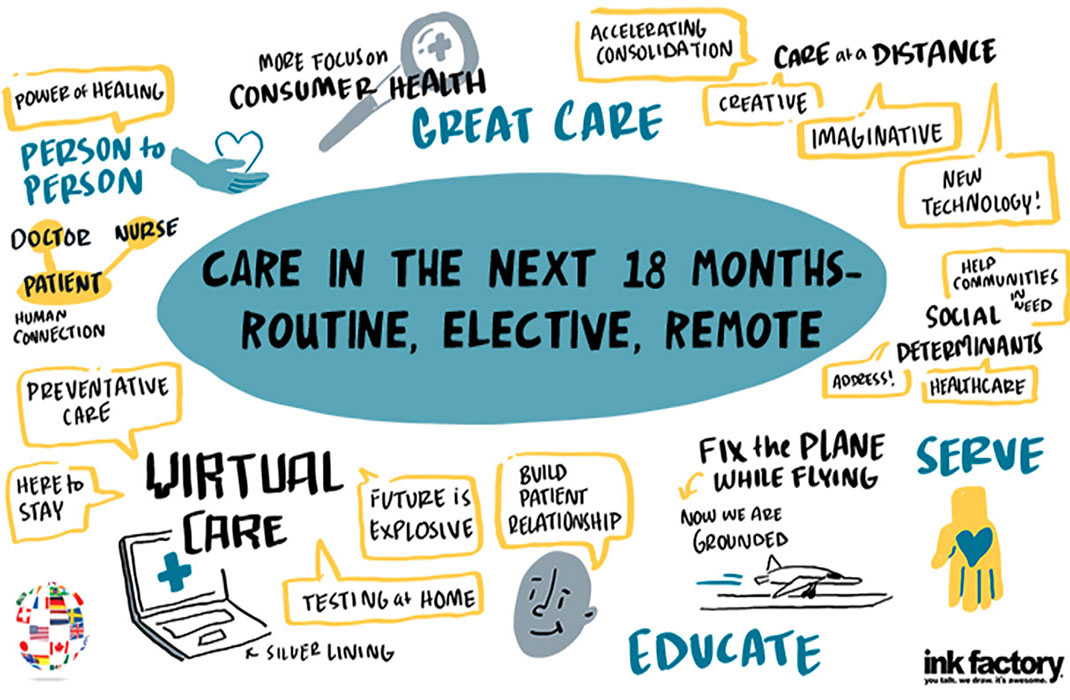 MORE FOCUS ON
CONSUMER HEALTH
GREAT CARE
ACCELERATING
CONSOLIDATION
CARE at a DISTANCE
CREATIVE
IMAGINATIVE
NEW
TECHNOLOGY!
POWER of HEALING
PERSON to
PERSON
DOCTOR NURSE
PATIENT
HUMAN
CONNECTION
CARE IN THE NEXT 18 MONTHS-
ROUTINE, ELECTIVE, REMOTE
HELP
COMMUNITIES
IN NEED
SOCIAL
DETERMINANTS
ADDRESS!
HEALTHCARE
PREVENTATIVE
CARE
HERE to
STAY
VIRTUAL
CARE
FUTURE is
EXPLOSIVE
TESTING at HOME
SILVER LINING
BUILD
PATIENT
RELATIONSHIP
FIX the PLANE
WHILE FLYING
NOW WE ARE
GROUNDED
EDUCATE
SERVE
ink factory
you talk. we draw. it's awesome.